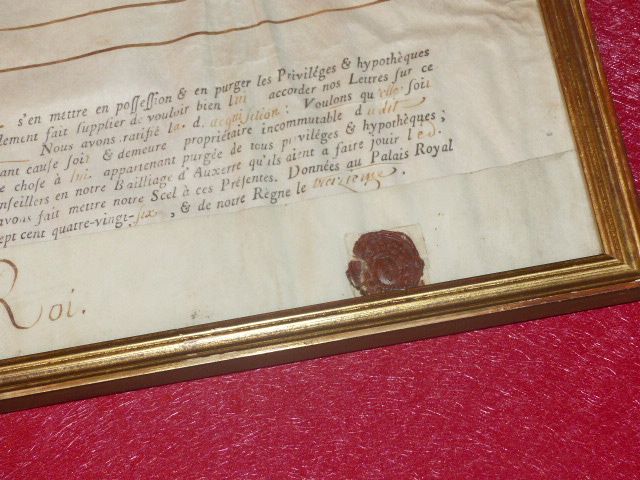 s'en mettre en possession & en purger les Priviléges & hypothèques
lement fait supplier de vouloir bien lui accorder nos Lettres sur ce
Nous avons ratifié la d. acquisition : Voulons qu'elle soit
ant cause soit & demeure propriétaire incommutable dudit
e chose à lui appartenant purgée de tous privéges & hypothèques ;
nseillers en notre Bailliage d'Auxerre qu'ils aient a faire jouir led.
avons fait mettre notre Scel à ces Présentes. Données au Palais Royal
ept cent quatre-vingt-six, & de notre Règne le treizieme.
Roi.